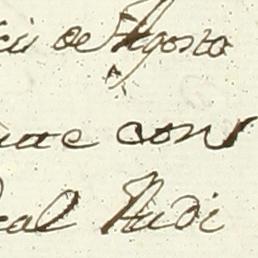 cis de Agosto
ate cons
eal Audi